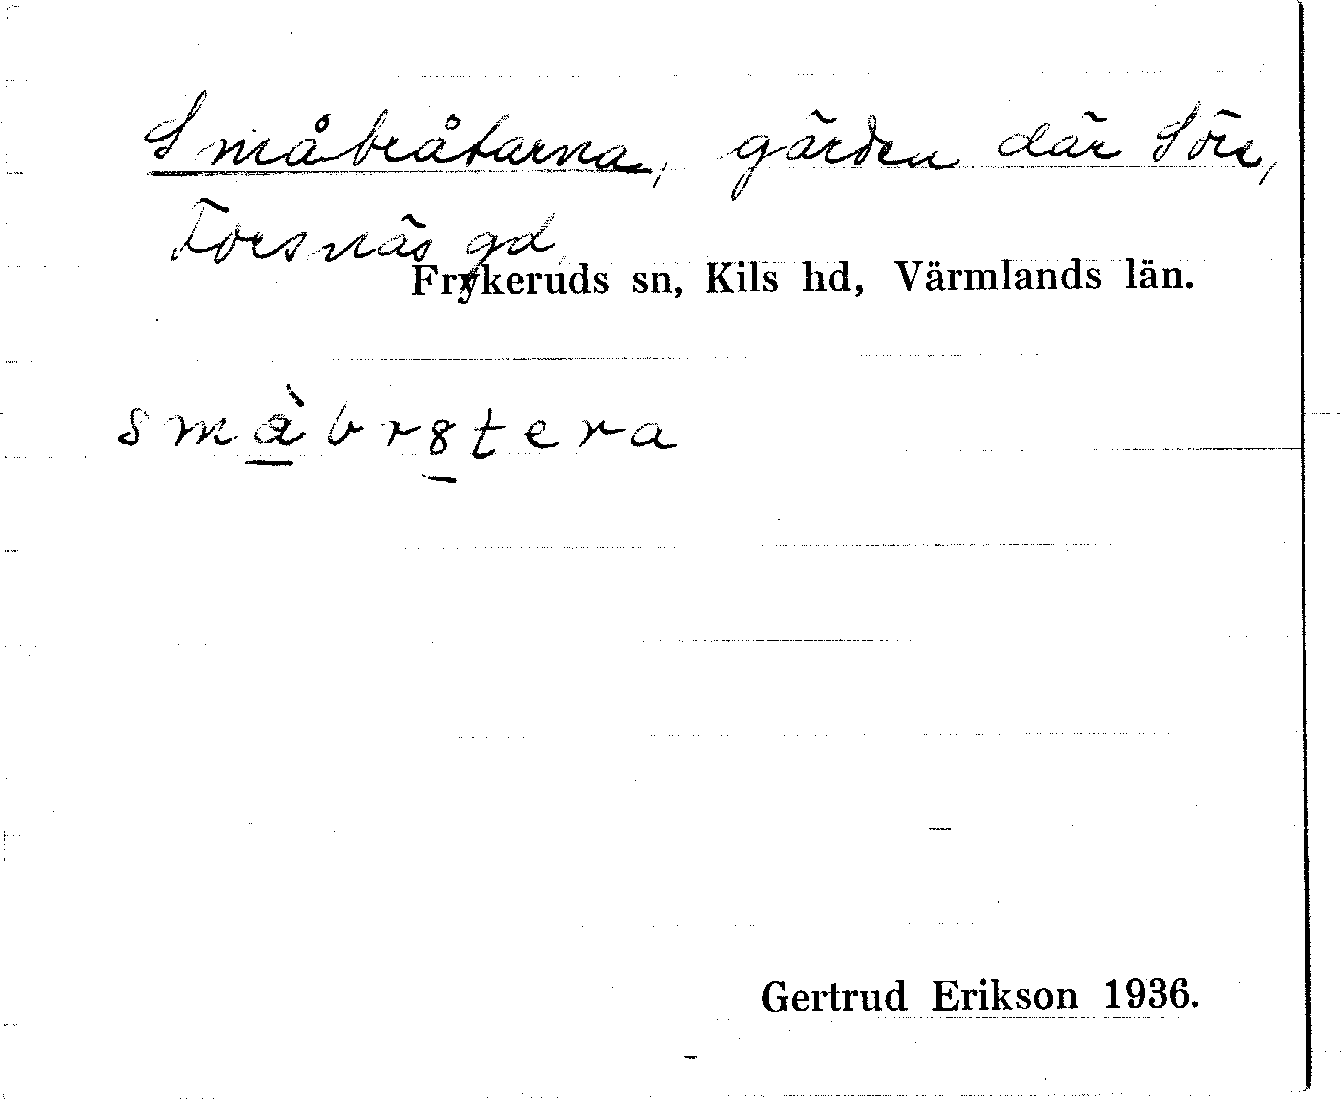 Småbråtarna, gärden där Söre,
Forsnäs gd
Frykeruds sn, Kils hd, Värmlands län.
smàbr8tera
Gertrud Erikson 1936.